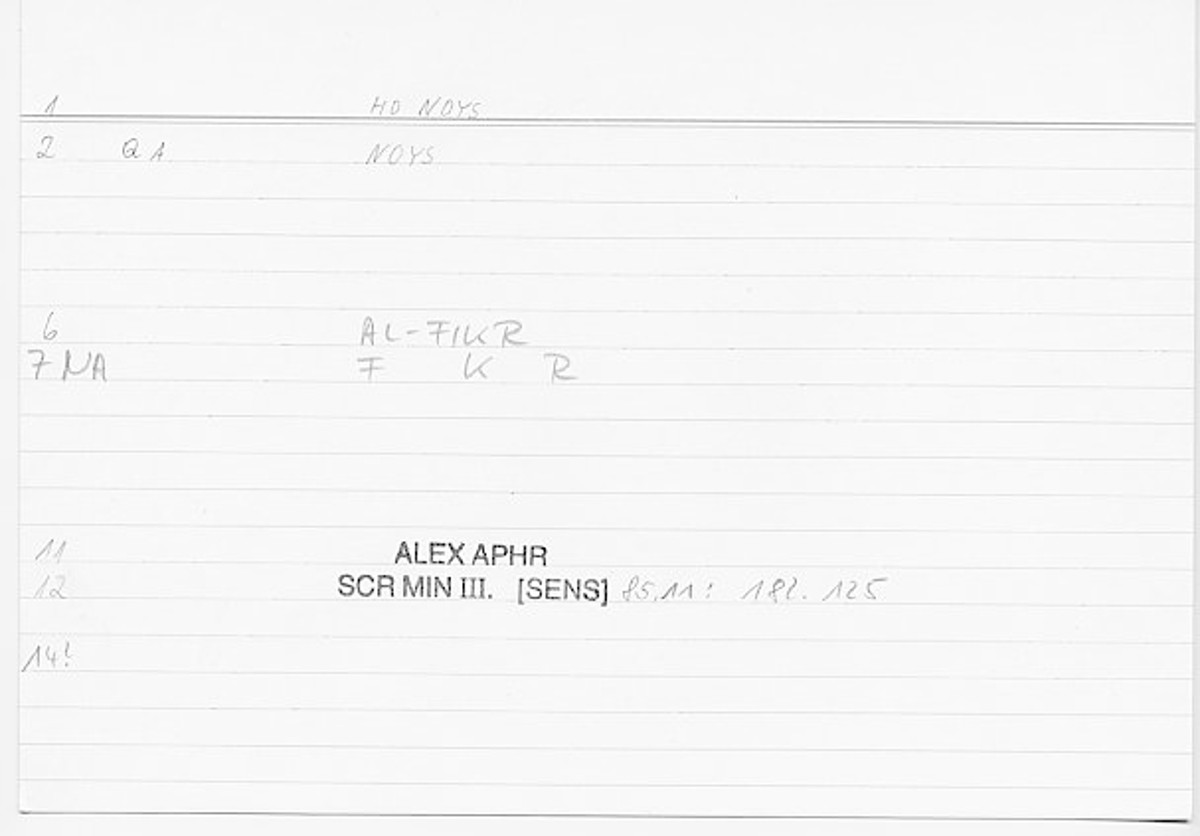 1 HO NOYS
2 QA NOYS
6 AL-FIKR
7 NA F K R
11 ALEX APHR
12 SCR MIN III. [SENS] 85.11: 182. 125
14!